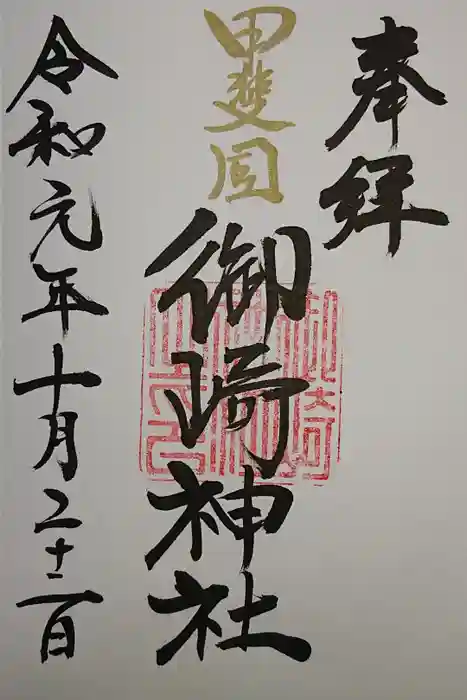 奉拝
甲斐国
御崎神社
令和元年十月二十二日